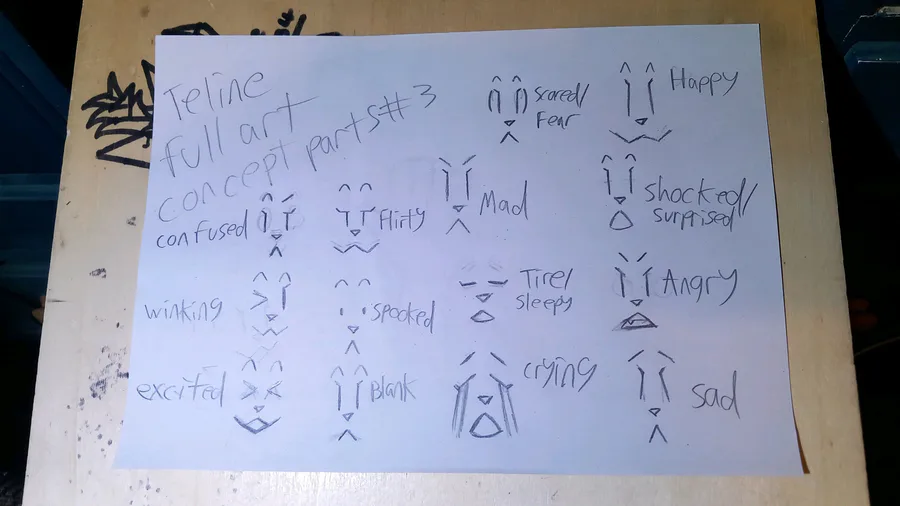 Teline
full art
concept parts#3
scared/
Fear
Happy
confused
Flirty
Mad
shocked/
surprised
winking
spooked
Tire/
sleepy
Angry
excited
Blank
crying
sad